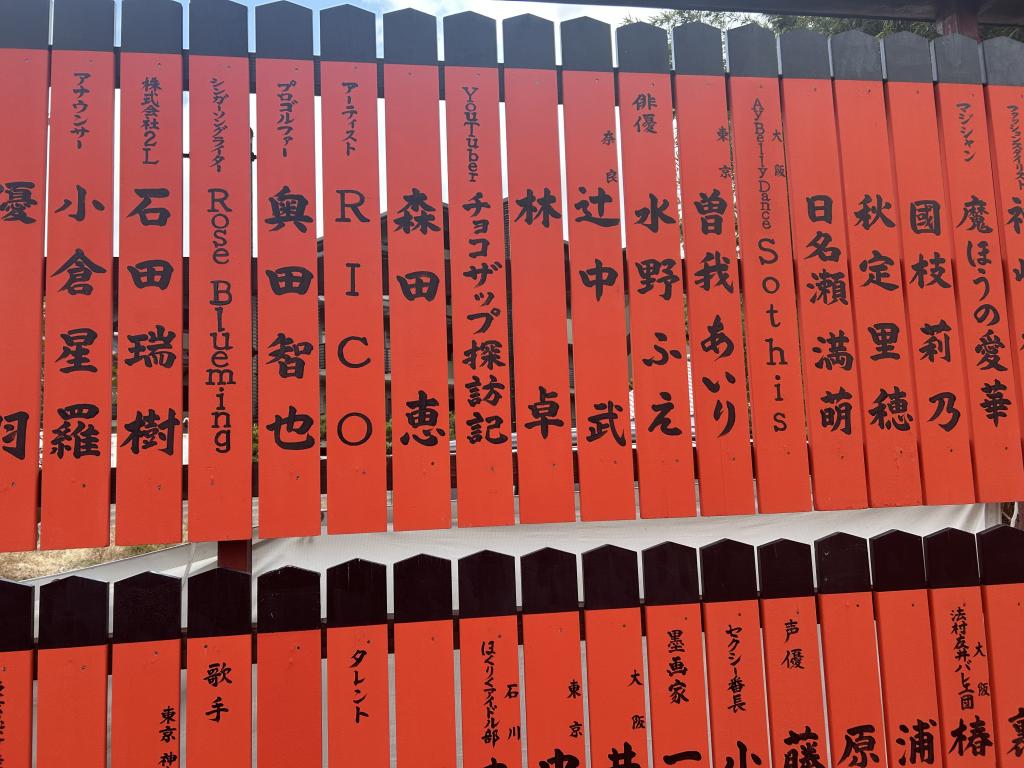 ファッションスタイリスト
マジシャン
魔ほうの愛華
國枝莉乃
秋定里穂
日名瀬満萌
大阪
AyBellyDance
Sothis
東京
曽我あいり
俳優
水野ふえ
奈良
辻中武
林卓
YouTuber
チョコザップ探訪記
森田恵
アーティスト
RICO
プロゴルファー
奥田智也
シンガーソングライター
Rose Blueming
株式会社2L
石田瑞樹
アナウンサー
小倉星羅
優
裏
大阪
法村友井バレエ団
椿
浦
原
声優
藤
セクシー番長
小
墨画家
一
大阪
東京
石川
ほくりくアイドル部
タレント
歌手
東京 神